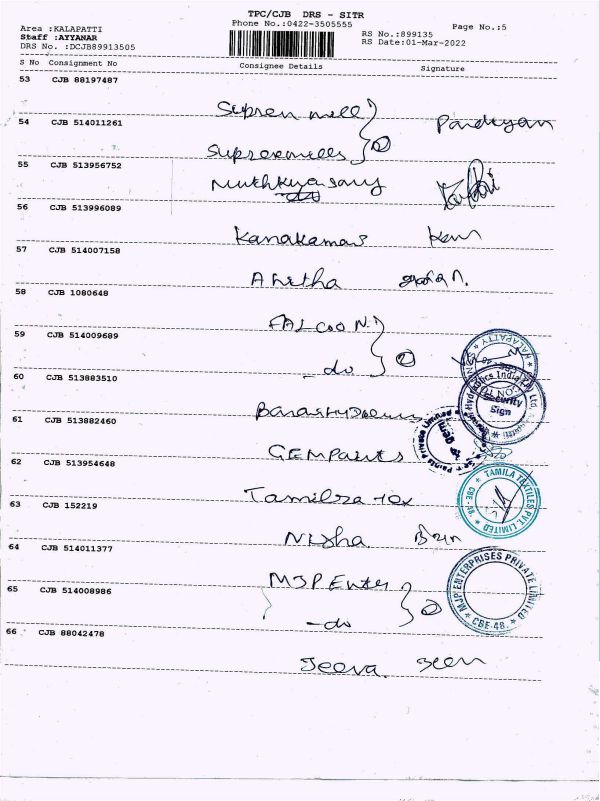 TPC/CJB DRS - SITR
Phone No.:0422-3505555
Page No.:5
Area :KALAPATTI
Staff :AYYANAR
DRS No. :DCJB89913505
RS No.:899135
RS Date:01-Mar-2022
S No Consignment No Consignee Details Signature
53 CJB 88197487
Supren mill
54 CJB 514011261
② Pandiyan
Supreemmills
55 CJB 513956752
56 CJB 513996089
Kanakamar
57 CJB 514007158
Anitha
58 CJB 1080648
FALCOON
59 CJB 514009689
- do ②
60 CJB 513883510
Security
Sign
61 CJB 513882460
GEMPaints
62 CJB 513954648
TAMILA TAXTILES PVT. LIMITED
CBE - 48
63 CJB 152219
Nisha
64 CJB 514011377
MJP Enter
65 CJB 514008986
- do ②
MJP ENTERPRISES PRIVATE LIMITED
CBE-48.
66 CJB 88042478
Jeeva. Jeev